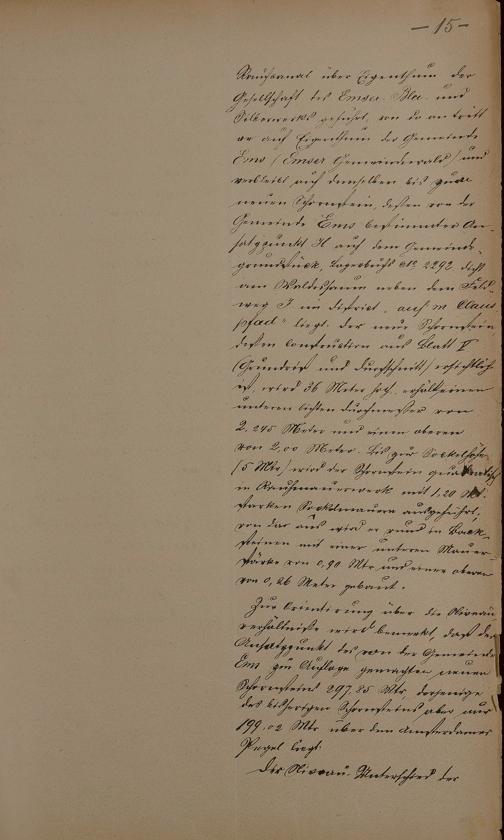 - 15 -
Rauchcanal über Eigenthum der
Gesellschaft des Emser- Blei- und
Silberwerks geführt, von da an tritt
er auf Eigenthum der Gemeinde
Ems (Emser Gemeindewald) und
verbleibt auf demselben bis zum
neuen Schornstein, dessen von der
Gemeinde Ems bestimmter An-
satzpunkt H auf dem Gemeinde-
grundstück, Lagerbuchs No 2292 dicht
am Waldessaum neben dem Feld-
weg J im District "auf'm Claus
pfad" liegt. der neue Schornstein
dessen Construction aus Blatt V
(Grundriß und Durchschnitt) ersichtlich
ist, wird 36 Meter hoch, erhält einen
unteren lichten Durchmesser von
2,245 Meter und einen oberen
von 2,00 Meter. Bis zur Sockelhöhe
(5 Mtr) wird der Schornstein quadratisch
in Bruchmauerwerk mit 1,20 Mt.
starken Sockelmauern ausgeführt;
von da aus wird er rund in Back-
steinen mit einer unteren Mauer-
stärke von 0,90 Mtr und einer oberen
von 0,26 Meter gebaut.
Zur Orientirung über die Niveau
verhältnisse wird bemerkt, daß der
Ansatzpunkt des von der Gemeinde
Ems zur Auflage gemachten neuen
Schornsteins 297,25 Mtr, derjenige
des bisherigen Schornsteins aber nur
199,02 Mtr über dem Amsterdamer
Pegel liegt.
Der Niveau-Unterschied der